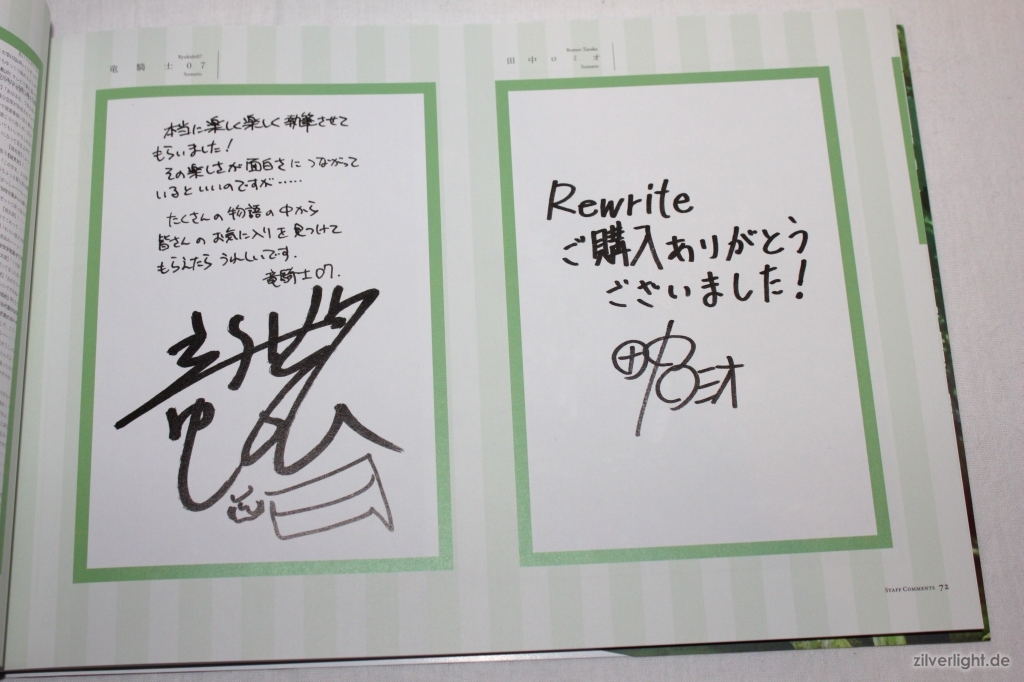 Ryukishi07
竜騎士07
Scenario
本当に楽しく楽しく執筆させて
もらいました!
その楽しさが面白さに つながって
いるといいのですが・・・・・
たくさんの物語の中から
皆さんのお気に入りを見つけて
もらえたら うれしいです.
竜騎士07.
Romeo Tanaka
田中ロミオ
Scenario
Rewrite
ご購入ありがとう
ございました!
田中ロミオ
STAFF COMMENTS 72
zilverlight.de